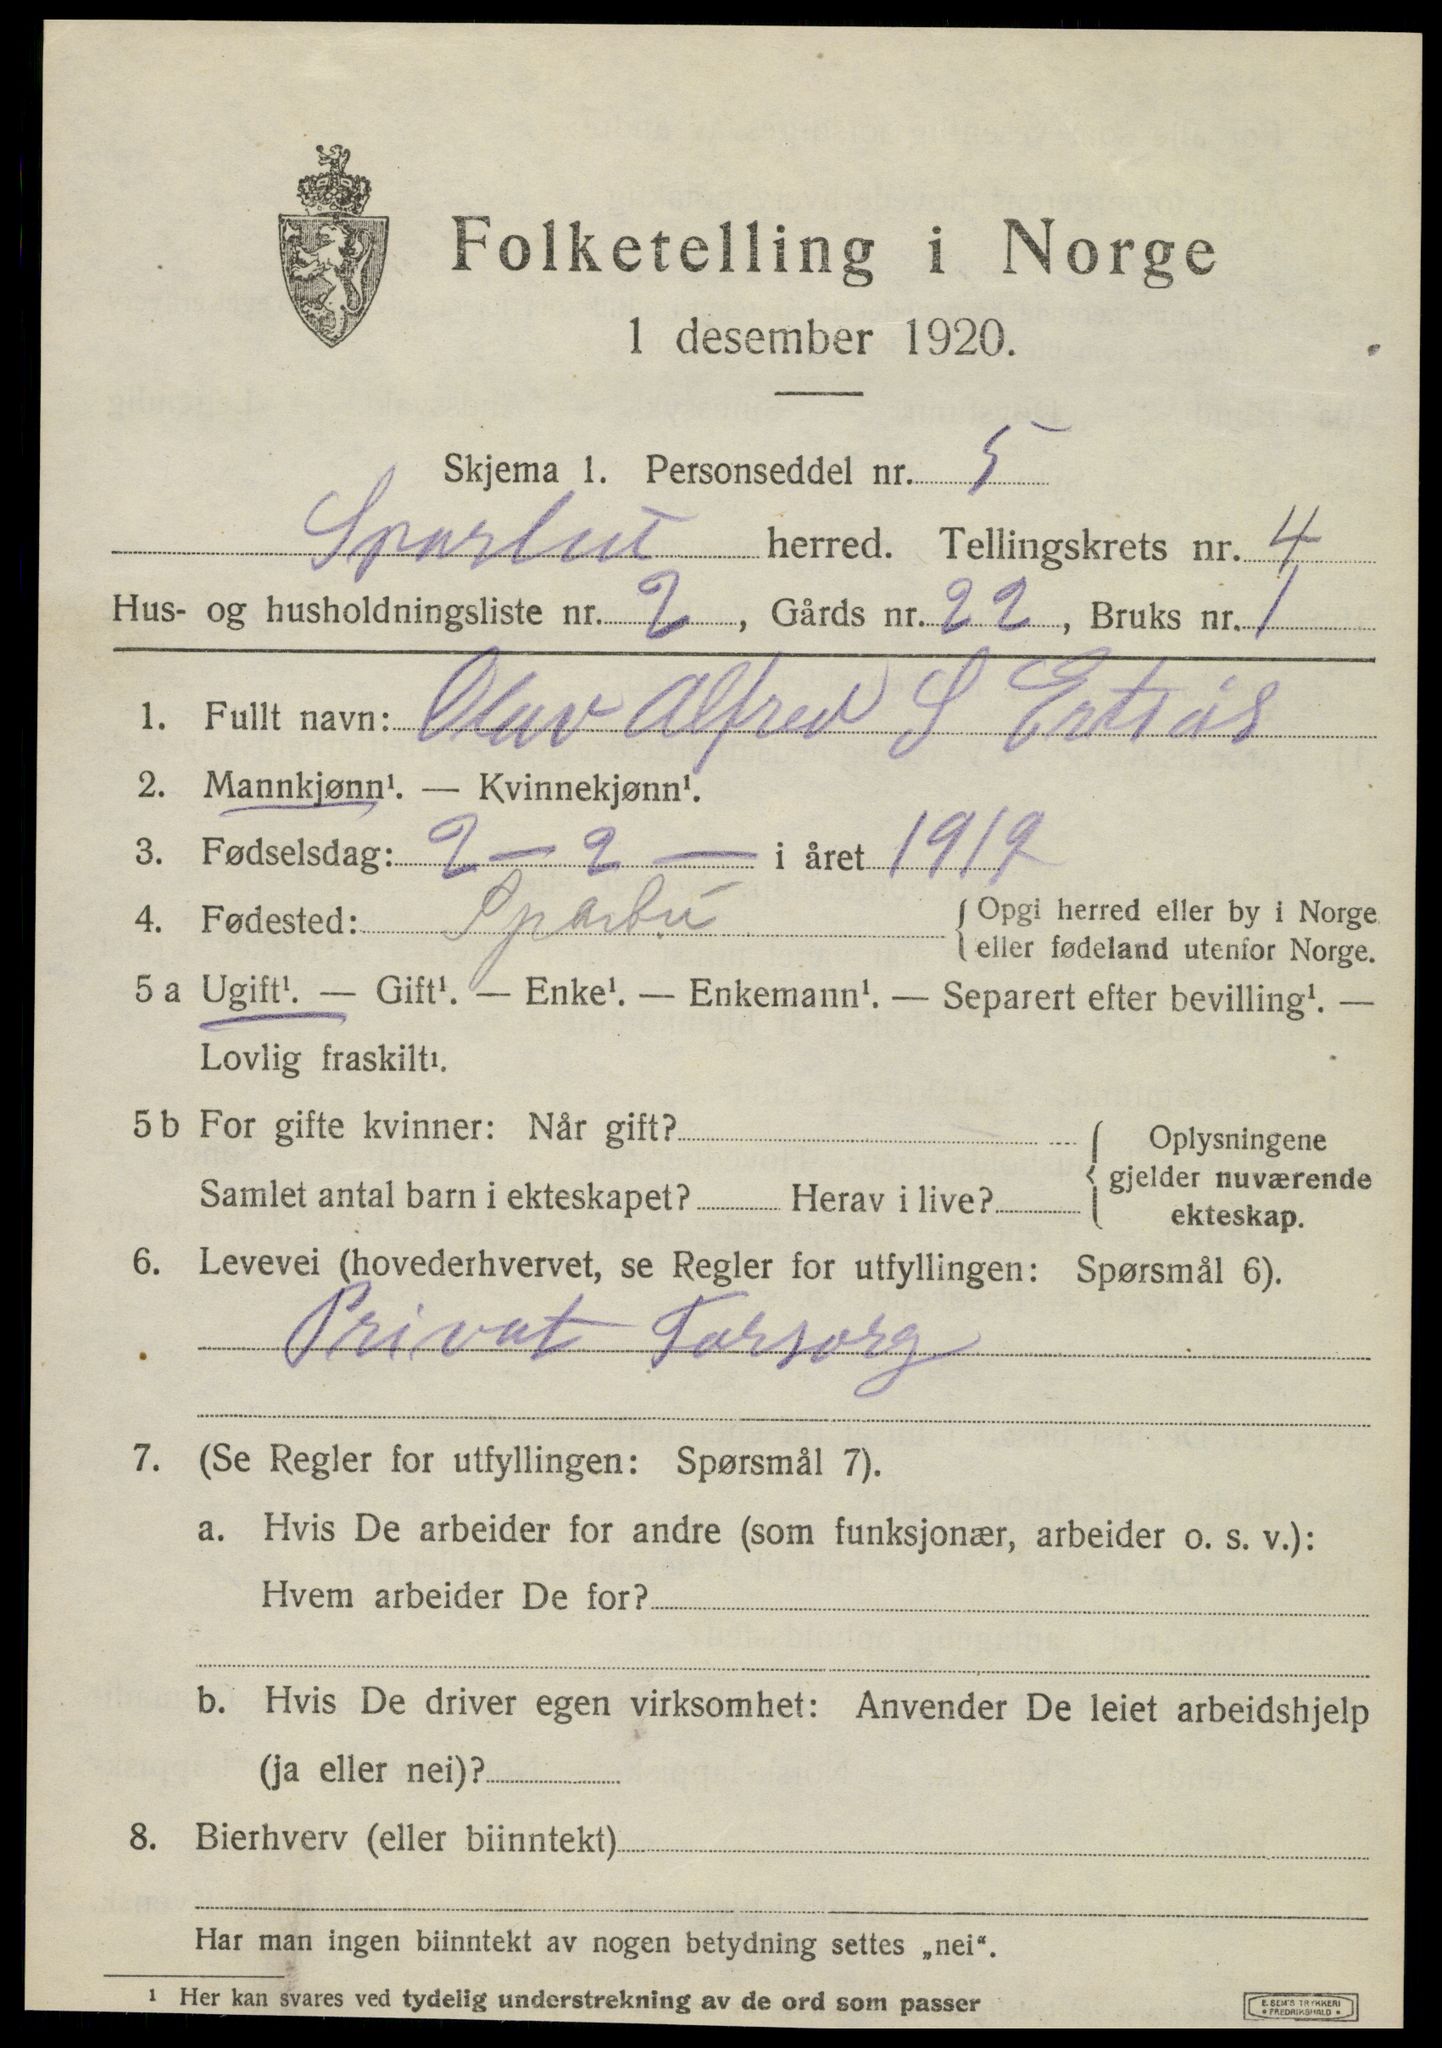 Folketelling i Norge
1 desember 1920.
Skjema 1. Personseddel nr. 5
Sparbu herred. Tellingskrets nr. 4
Hus- og husholdningsliste nr. 2, Gårds nr. 22, Bruks nr. 1
1. Fullt navn: Olav Alfred S Ertsås
2. Mannkjønn¹. — Kvinnekjønn¹.
3. Fødselsdag: 2 — 2 — i året 1912
4. Fødested: Sparbu { Opgi herred eller by i Norge
eller fødeland utenfor Norge.
5 a Ugift¹. — Gift¹. — Enke¹. — Enkemann¹. — Separert efter bevilling¹. —
Lovlig fraskilt¹.
5 b For gifte kvinner: Når gift? { Oplysningene
gjelder nuværende
Samlet antal barn i ekteskapet? Herav i live? ekteskap.
6. Levevei (hovederhvervet, se Regler for utfyllingen: Spørsmål 6).
Privat Forsorg
7. (Se Regler for utfyllingen: Spørsmål 7).
a. Hvis De arbeider for andre (som funksjonær, arbeider o. s. v.):
Hvem arbeider De for?
b. Hvis De driver egen virksomhet: Anvender De leiet arbeidshjelp
(ja eller nei)?
8. Bierhverv (eller biinntekt)
Har man ingen biinntekt av nogen betydning settes „nei“.
¹ Her kan svares ved tydelig understrekning av de ord som passer
E. SEM'S TRYKKERI
FREDRIKSHALD